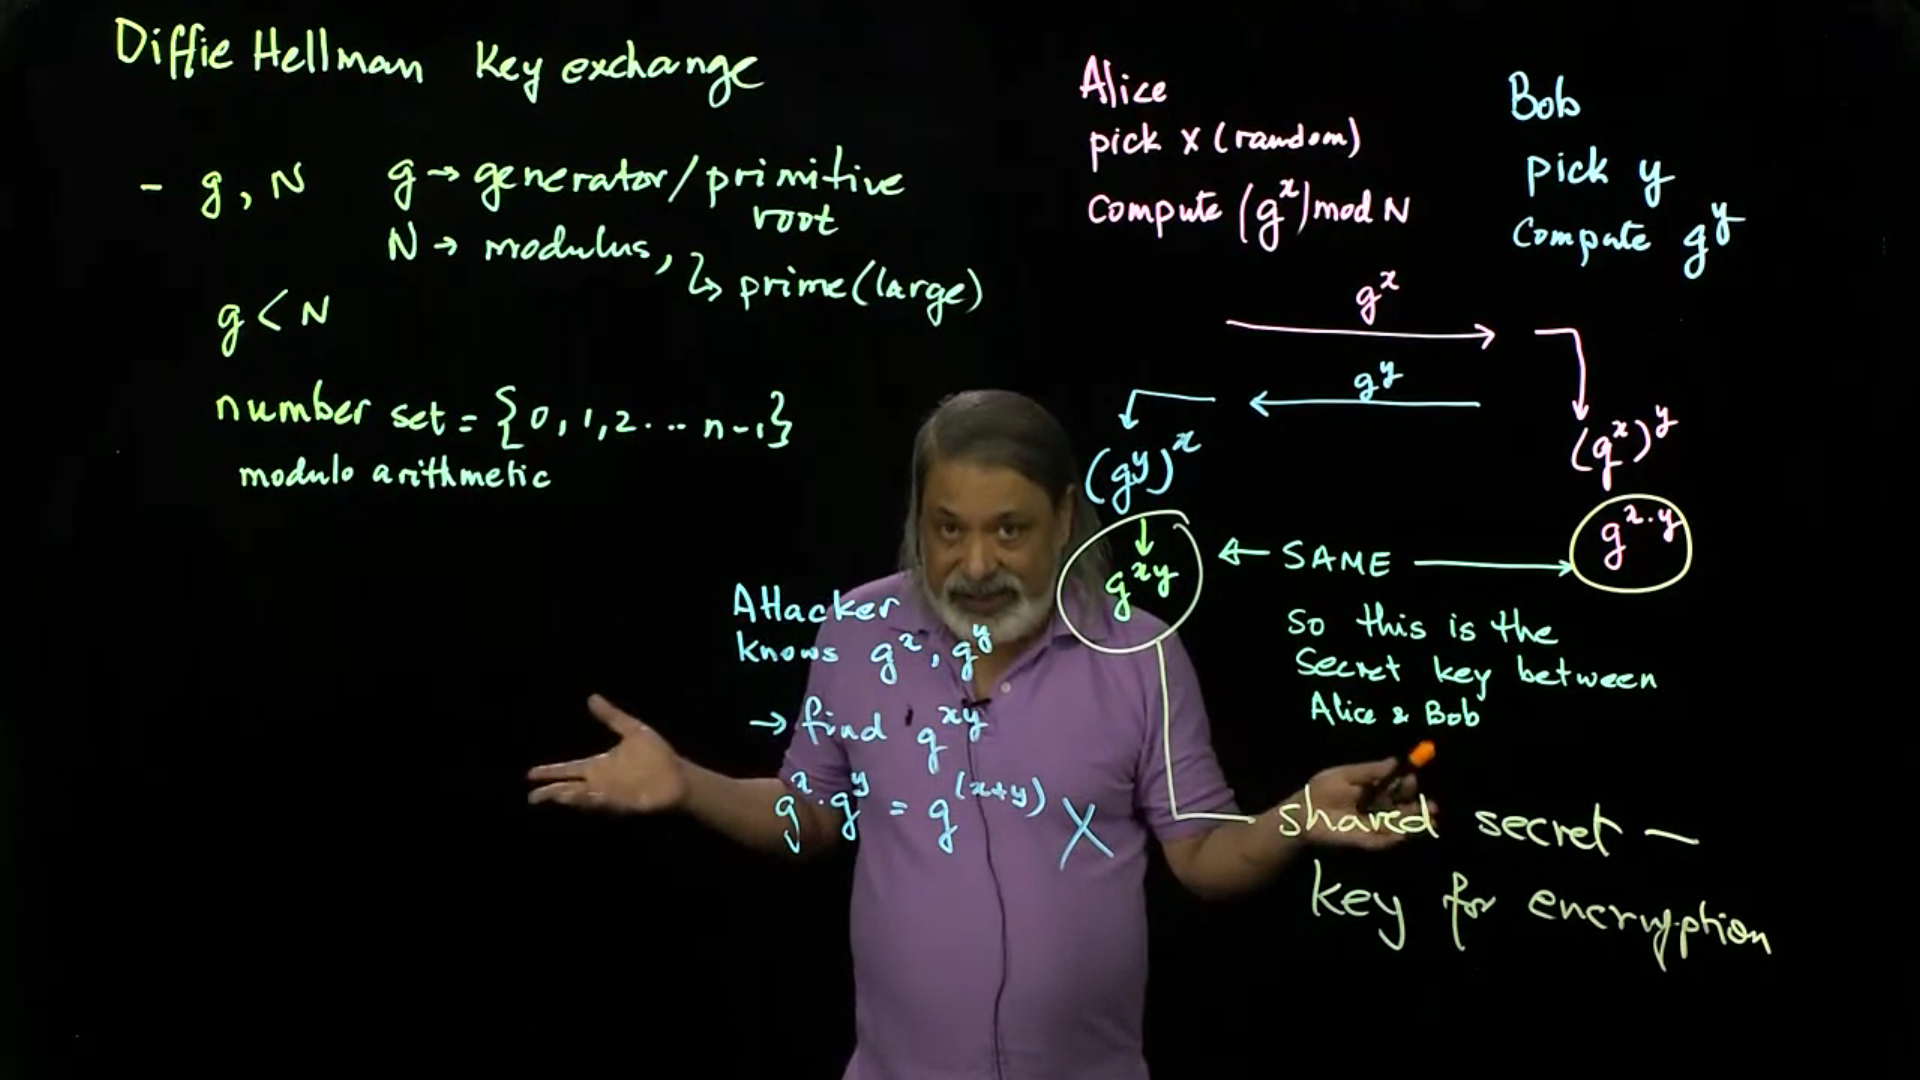 Diffie Hellman Key exchange
- g, N g → generator/primitive
root
N → modulus, ↳ prime (large)
g < N
number set = {0, 1, 2 . . . n-1}
modulo arithmetic
Alice
pick x (random)
Compute (g^x) mod N
Bob
pick y
Compute g^y
g^x
g^y
(g^y)^x
(g^x)^y
g^xy
← SAME →
g^x.y
So this is the
Secret key between
Alice & Bob
Attacker
knows g^x, g^y
→ find g^xy
g^x . g^y = g^(x+y) X
shared secret –
key for encryption